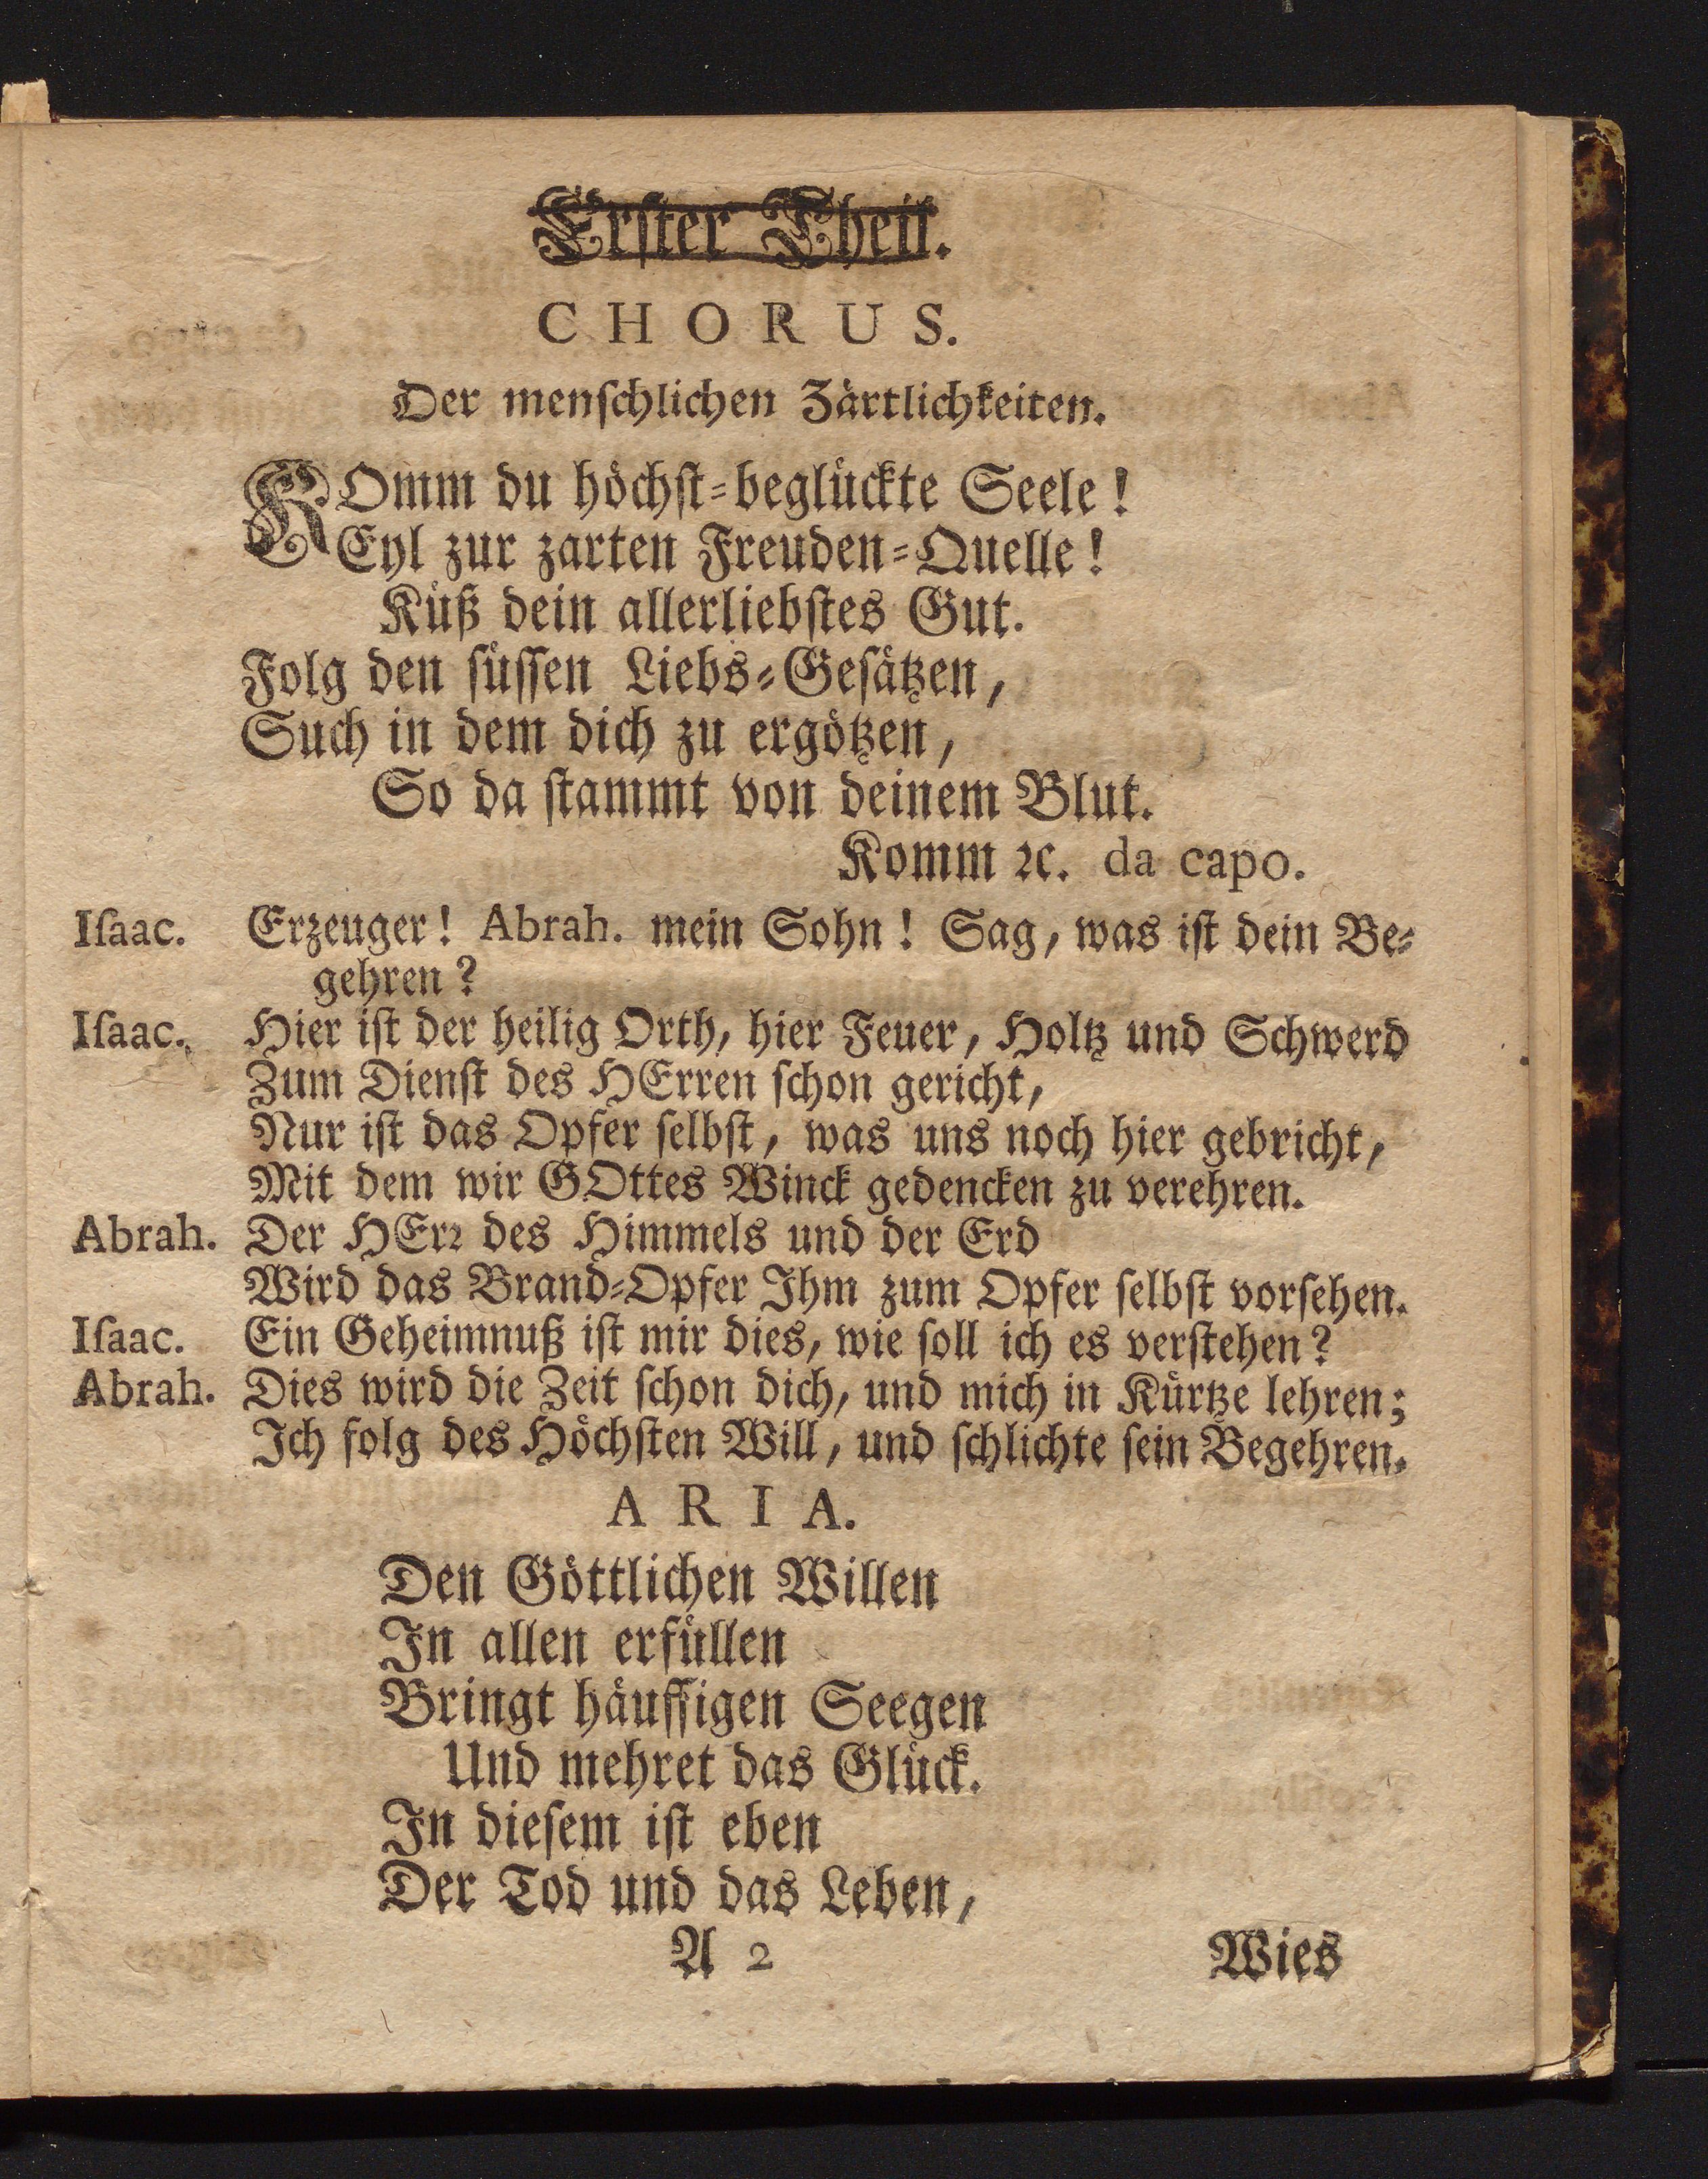 Erſter Theil.
CHORUS.
Der menſchlichen Zärtlichkeiten.
KOmm du höchſt-beglückte Seele!
Eyl zur zarten Freuden-Quelle!
Küß dein allerliebſtes Gut.
Folg den ſüſſen Liebs-Geſätzen,
Such in dem dich zu ergötzen,
So da ſtammt von deinem Blut.
Komm ꝛc. da capo.
Iſaac. Erzeuger! Abrah. mein Sohn! Sag, was iſt dein Be-
gehren?
Iſaac. Hier iſt der heilig Orth, hier Feuer, Holtz und Schwerd
Zum Dienſt des HErren ſchon gericht,
Nur iſt das Opfer ſelbſt, was uns noch hier gebricht,
Mit dem wir GOttes Winck gedencken zu verehren.
Abrah. Der HErꝛ des Himmels und der Erd
Wird das Brand-Opfer Ihm zum Opfer ſelbſt vorſehen.
Iſaac. Ein Geheimnuß iſt mir dies, wie ſoll ich es verſtehen?
Abrah. Dies wird die Zeit ſchon dich, und mich in Kürtze lehren;
Ich folg des Höchſten Will, und ſchlichte ſein Begehren.
ARIA.
Den Göttlichen Willen
In allen erfüllen
Bringt häuffigen Seegen
Und mehret das Glück.
In dieſem iſt eben
Der Tod und das Leben,
A 2 Wies